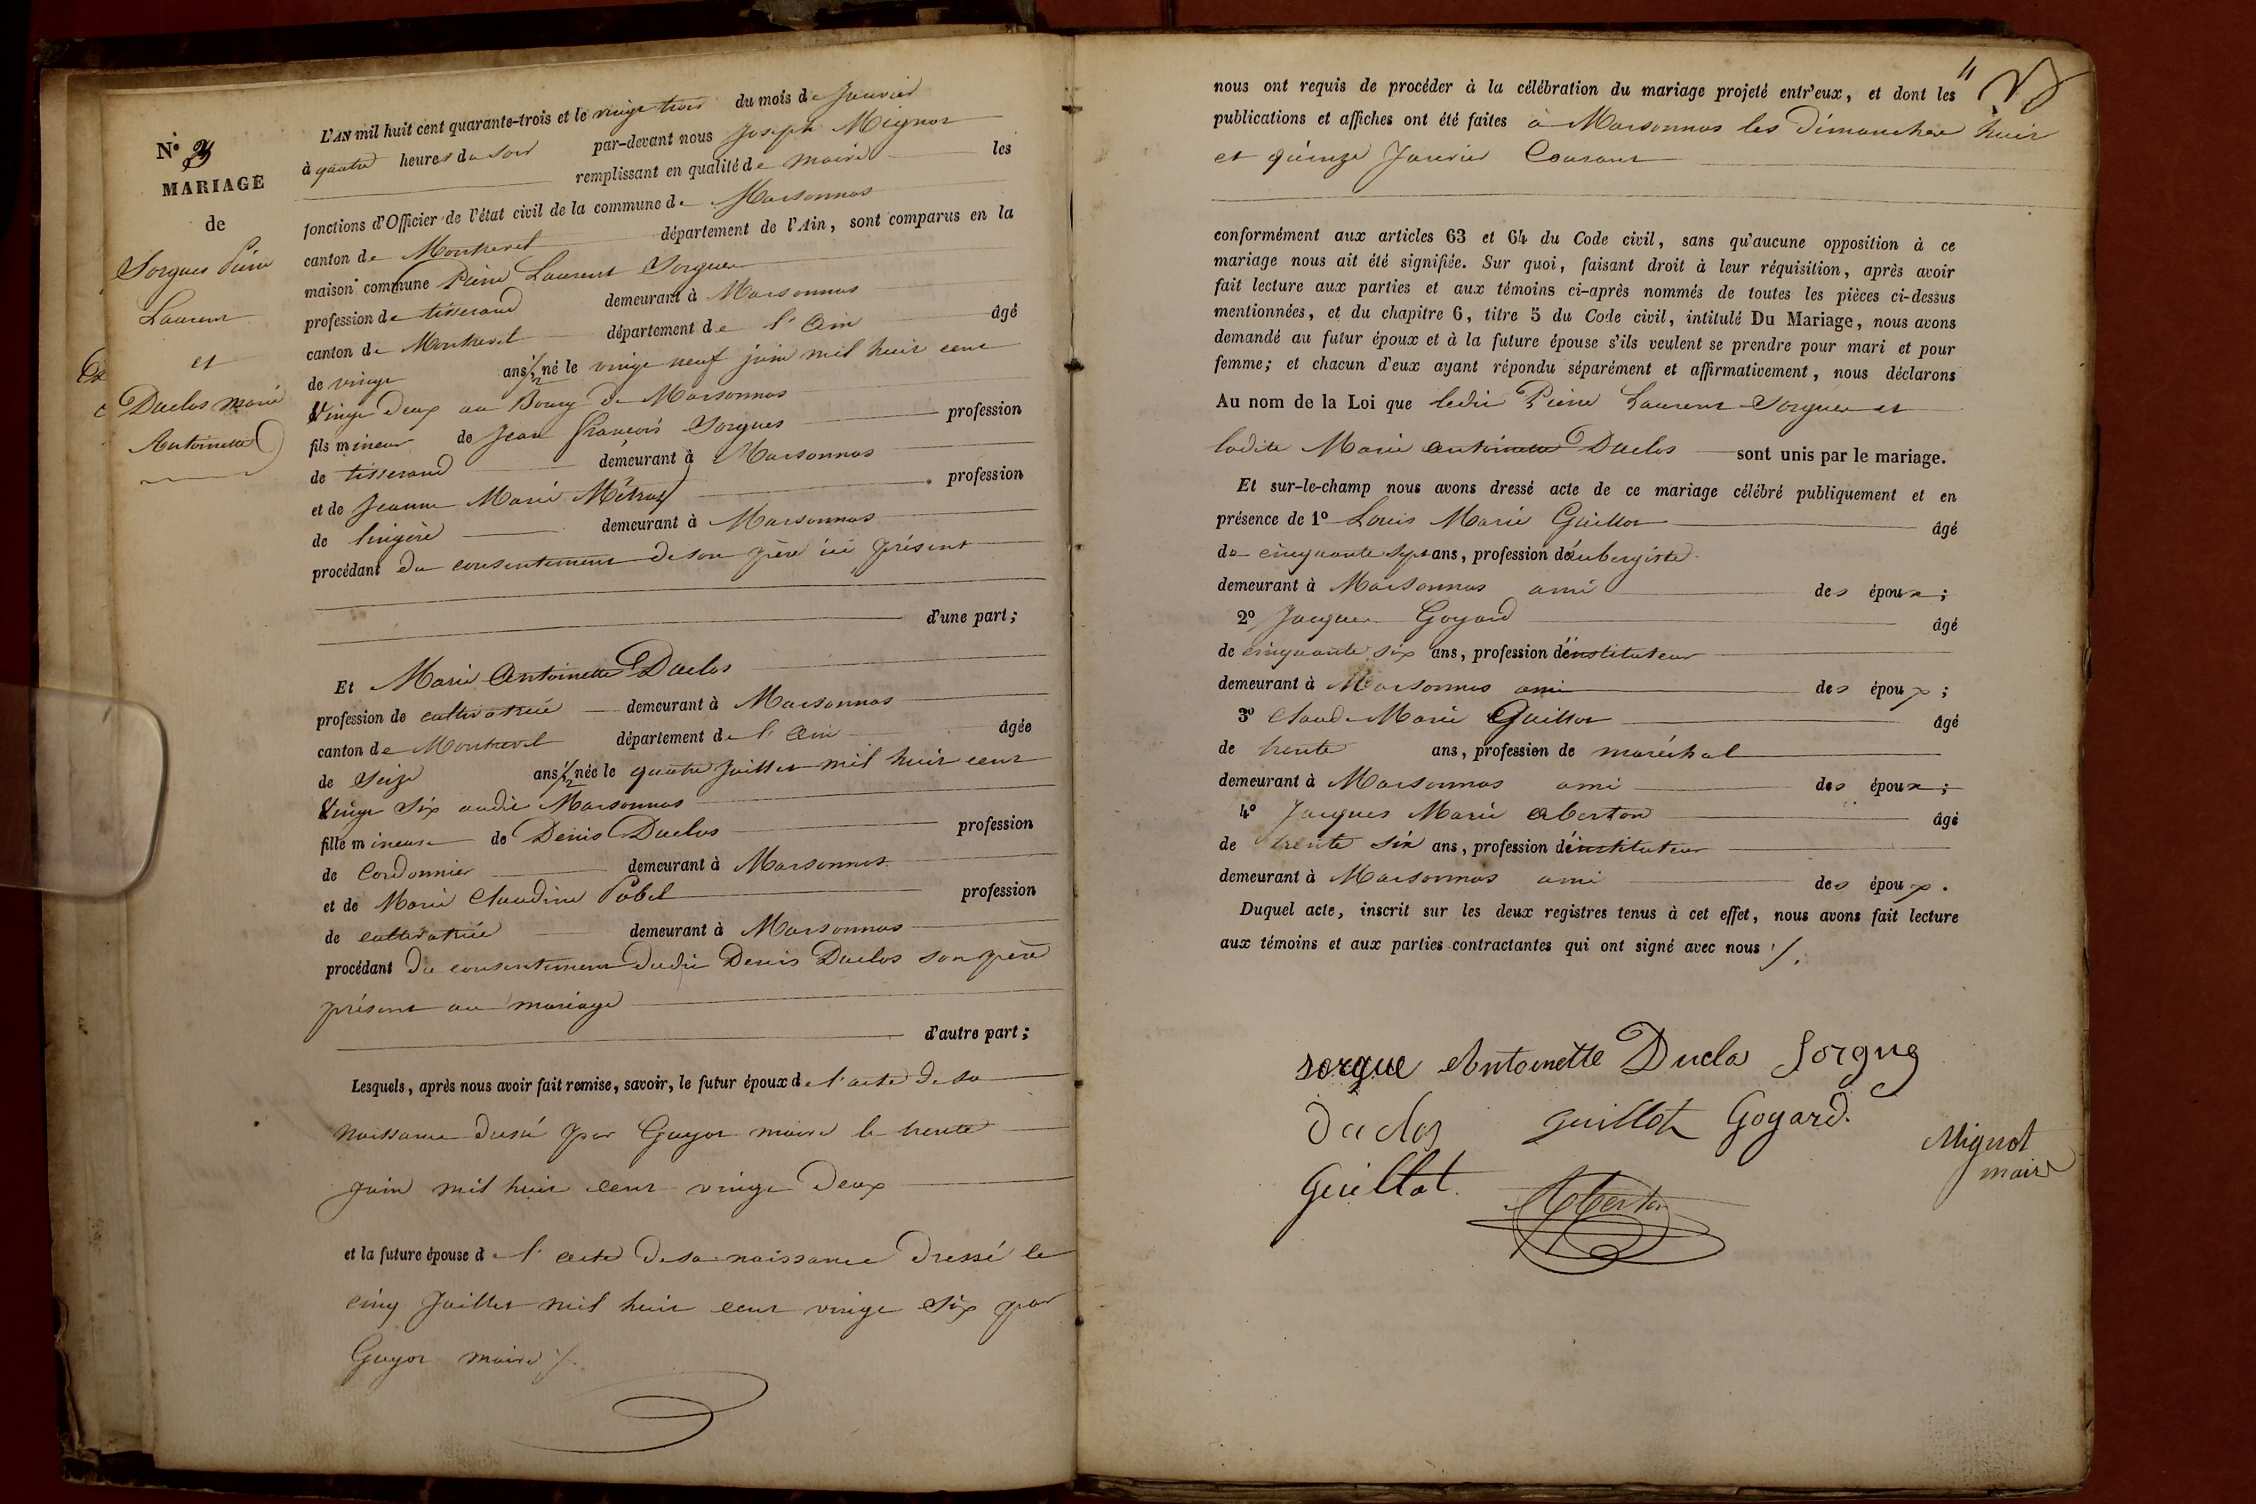 N° 3
MARIAGE
de
Sorgues Pierre
Laurent
et
Duclos Marie
Antoinette
L'AN mil huit cent quarante-trois et le vingt trois du mois de Janvier
à quatre heures du soir par-devant nous Joseph Mignot
remplissant en qualité de maire les
fonctions d'Officier de l'état civil de la commune de Marsonnas
canton de Montrevel département de l'Ain, sont comparus en la
maison commune Pierre Laurent Sorgues
profession de tisserand demeurant à Marsonnas
canton de Montrevel département de l'Ain âgé
de vingt ans 1/2 né le vingt neuf juin mil huit cent
Vingt deux au Bourg de Marsonnas
fils mineur de Jean François Sorgues profession
de tisserand demeurant à Marsonnas
et de Jeanne Marie Métras profession
de lingère demeurant à Marsonnas
procédant du consentement de son père ici présent
d'une part;
Et Marie Antoinette Duclos
profession de cultivatrice demeurant à Marsonnas
canton de Montrevel département de l'Ain âgée
de Seize ans 1/2 née le quatre Juillet mil huit cent
Vingt Six audit Marsonnas
fille mineure de Denis Duclos profession
de Cordonnier demeurant à Marsonnas
et de Marie Claudine Pobel profession
de cultivatrice demeurant à Marsonnas
procédant du consentement dudit Denis Duclos son père
présent au mariage
d'autre part;
Lesquels, après nous avoir fait remise, savoir, le futur époux de l'acte de sa
naissance dressé par Guyot maire le trente
juin mil huit cent vingt deux
et la future épouse de l'acte de sa naissance dressé le
cinq Juillet mil huit cent vingt Six par
Guyot maire ./.
4
nous ont requis de procéder à la célébration du mariage projeté entr'eux, et dont les
publications et affiches ont été faites à Marsonnas les Dimanches huit
et quinze Janvier Courant
conformément aux articles 63 et 64 du Code civil, sans qu'aucune opposition à ce
mariage nous ait été signifiée. Sur quoi, faisant droit à leur réquisition, après avoir
fait lecture aux parties et aux témoins ci-après nommés de toutes les pièces ci-dessus
mentionnées, et du chapitre 6, titre 5 du Code civil, intitulé Du Mariage, nous avons
demandé au futur époux et à la future épouse s'ils veulent se prendre pour mari et pour
femme; et chacun d'eux ayant répondu séparément et affirmativement, nous déclarons
Au nom de la Loi que ledit Pierre Laurent Sorgues et
ladite Marie Antoinette Duclos sont unis par le mariage.
Et sur-le-champ nous avons dressé acte de ce mariage célébré publiquement et en
présence de 1° Louis Marie Guillot âgé
de cinquante sept ans, profession d'aubergiste
demeurant à Marsonnas ami des époux;
2° Jacques Goyard âgé
de cinquante six ans, profession d'instituteur
demeurant à Marsonnas ami des époux;
3° Claude Marie Guillot âgé
de trente ans, profession de maréchal
demeurant à Marsonnas ami des époux;
4° Jacques Marie Aberton âgé
de trente six ans, profession d'instituteur
demeurant à Marsonnas ami des époux.
Duquel acte, inscrit sur les deux registres tenus à cet effet, nous avons fait lecture
aux témoins et aux parties contractantes qui ont signé avec nous ./.
sorgue Antoinette Duclo Sorgue
Duclos Guillot Goyard.
Mignot
maire
Guillot Aberton